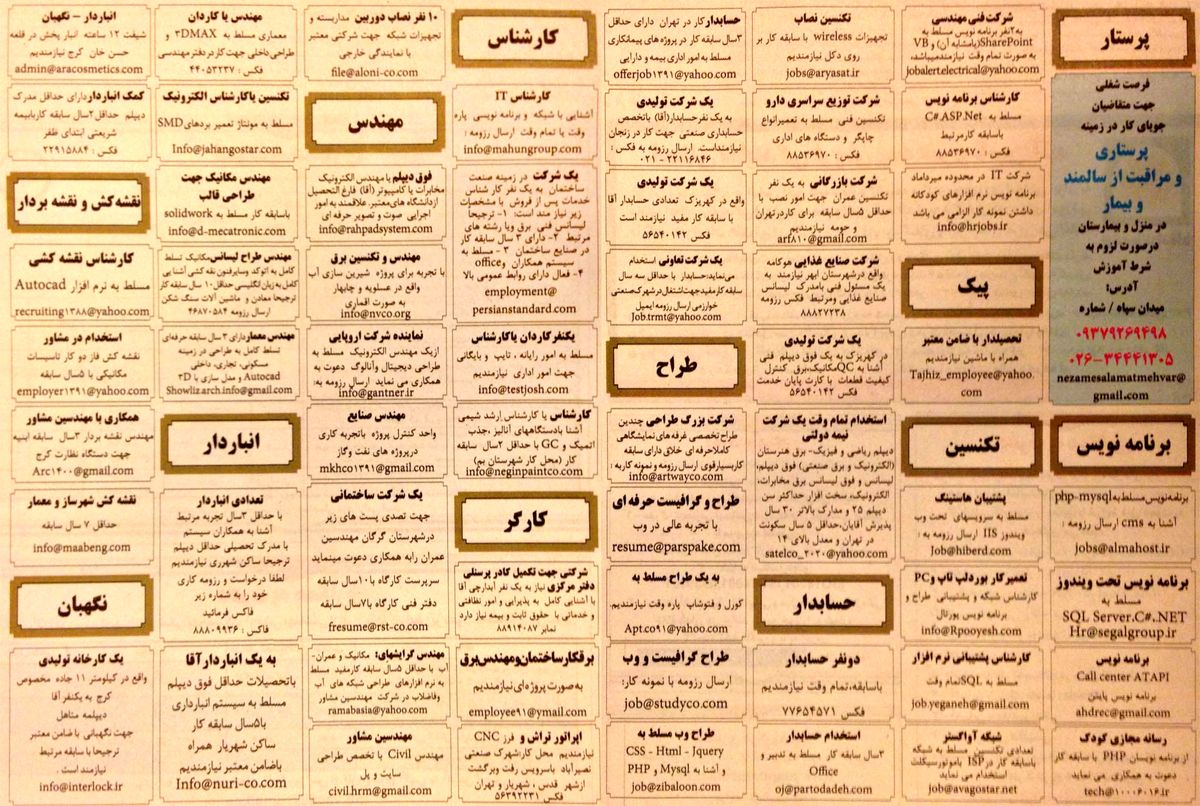 پرستار
فرصت شغلی
جهت متقاضیان
جویای کار در زمینه
پرستاری
و مراقبت از سالمند
و بیمار
در منزل و بیمارستان
درصورت لزوم به
شرط آموزش
آدرس:
میدان سپاه / شماره
۰۹۳۷۹۲۶۹۴۹۸
۰۲۶-۳۴۴۴۱۳۰۵
nezamesalamatmehvar@
gmail.com
برنامه نویس
برنامه‌نویس‌مسلط‌به php-mysql
آشنا به cms ارسال رزومه :
jobs@almahost.ir
برنامه نویس تحت ویندوز
مسلط به
SQL Server.C#.NET
Hr@segalgroup.ir
برنامه نویس
Call center ATAPI
برنامه نویس پایتن
ahdrec@gmail.com
رسانه مجازی کودک
از برنامه نویسان PHP با سابقه کار
دعوت به همکاری می نماید
tech@1000601۶.ir
شرکت فنی مهندسی
به۲نفر برنامه نویس مسلط به
SharePoint(یامشابه آن) و VB
به صورت تمام وقت نیازمندمیباشد.
jobalertelectrical@yahoo.com
کارشناس برنامه نویس
مسلط به C#.ASP.Net
باسابقه کارمرتبط
فکس : ۸۸۵۳۶۹۷۰
شرکت IT در محدوده میرداماد
برنامه نویس نرم افزارهای کودکانه
داشتن نمونه کار الزامی می باشد
info@hrjobs.ir
پیک
تحصیلدار با ضامن معتبر
همراه با ماشین نیازمندیم
Tajhiz_employee@yahoo.
com
تکنسین
پشتیبان هاستینگ
مسلط به سرویسهای تحت وب
ویندوز IIS ارسال رزومه به :
Job@hiberd.com
تعمیرکار بوردلپ تاپ وPC
کارشناس شبکه و پشتیبانی طراح و
برنامه نویس پورتال
info@Rpooyesh.com
کارشناس پشتیبانی نرم افزار
مسلط به SQLتمام وقت
job.yeganeh@gmail.com
شبکه آواگستر
تعدادی تکنسین مسلط به شبکه
باسابقه کار در ISP باموتورسیکلت
استخدام می نماید
job@avagostar.net
تکنسین نصاب
تجهیزات wireless با سابقه کار بر
روی دکل نیازمندیم
jobs@aryasat.ir
شرکت توزیع سراسری دارو
تکنسین فنی مسلط به تعمیرانواع
چاپگر و دستگاه های اداری
فکس : ۸۸۵۳۶۹۷۰
شرکت بازرگانی به یک نفر
تکنسین عمران جهت امور نصب با
حداقل ۵سال سابقه برای کاردرتهران
و حومه نیازمندیم
arf810@gmail.com
شرکت صنایع غذایی هوکامه
واقع درشهرستان ابهر نیازمند به
یک مسئول فنی بامدرک لیسانس
صنایع غذایی ومرتبط فکس رزومه
۸۸۸۲۷۲۳۸
یک شرکت تولیدی
در کهریزک به یک فوق دیپلم فنی
آشنا به QCمکانیک،برق کنترل
کیفیت قطعات با کارت پایان خدمت
فکس ۵۶۵۴۰۱۴۲
استخدام تمام وقت یک شرکت
نیمه دولتی
دیپلم ریاضی و فیزیک- برق هنرستان
(الکترونیک و برق صنعتی) فوق دیپلم،
لیسانس و فوق لیسانس برق مخابرات،
الکترونیک، سخت افزار حداکثر سن
دیپلم ۲۵ و مدارک بالاتر ۳۰ سال
پذیرش آقایان،حداقل ۵ سال سکونت
در تهران و معدل بالای ۱۴
satelco_2020@yahoo.com
حسابدار
دونفر حسابدار
باسابقه،تمام وقت نیازمندیم
فکس ۷۷۶۵۴۵۷۱
استخدام حسابدار
۳سال سابقه کار مسلط به تدبیر و
Office
oj@partodadeh.com
حسابدارکار در تهران دارای حداقل
۳سال سابقه کار در پروژه های پیمانکاری
مسلط به امور اداری بیمه و دارایی
offerjob1391@yahoo.com
یک شرکت تولیدی
به یک نفرحسابدار(آقا) باتخصص
حسابداری صنعتی جهت کار در زنجان
نیازمنداست. ارسال رزومه به فکس :
۰۲۱ - ۲۲۱۱۶۸۴۶
یک شرکت تولیدی
واقع در کهریزک تعدادی حسابدار آقا
با سابقه کار مفید نیازمند است
فکس ۵۶۵۴۰۱۴۲
یک شرکت تعاونی استخدام
می‌نماید:حسابدار با حداقل سه سال
سابقه‌کارمفیدجهت‌اشتغال‌درشهرک‌صنعتی
خوارزمی ارسال رزومه ایمیل
Job.trmt@yahoo.com
طراح
شرکت بزرگ طراحی چندین
طراح تخصصی غرفه های نمایشگاهی
کاملاحرفه ای خلاق دارای سابقه
کاربسیارقوی ارسال رزومه و نمونه کاربه :
info@artwayco.com
طراح و گرافیست حرفه ای
با تجربه عالی در وب
resume@parspake.com
به یک طراح مسلط به
کورل و فتوشاپ پاره وقت نیازمندیم.
Apt.co91@yahoo.com
طراح گرافیست و وب
ارسال رزومه با نمونه کار:
job@studyco.com
طراح وب مسلط به
CSS - Html - Jquery
و آشنا به Mysql و PHP
job@zibaloon.com
کارشناس
کارشناس IT
آشنایی با شبکه و برنامه نویسی پاره
وقت یا تمام وقت ارسال رزومه :
info@mahungroup.com
یک شرکت در زمینه صنعت
ساختمان به یک نفر کار شناس
خدمات پس از فروش با مشخصات
زیر نیاز مند است: ۱- ترجیحاً
لیسانس فنی برق ویا رشته های
مرتبط ۲- دارای ۳ سال سابقه کار
در صنایع ساختمان ۳ - مسلط به
سیستم همکاران وoffice
۴- فعال دارای روابط عمومی بالا
employment@
persianstandard.com
یکنفرگاردان یاکارشناس
مسلط به امور رایانه ، تایپ و بایگانی
جهت امور اداری نیازمندیم
info@testjosh.com
کارشناس یا کارشناس ارشد شیمی
آشنا بادستگاههای آنالیز ،جذب
اتمیک و GC با حداقل ۲سال سابقه
کار (محل کار شهرستان بم)
info@neginpaintco.com
کارگر
شرکتی جهت تکمیل کادر پرسنلی
دفتر مرکزی نیاز به یک نفر آبدارچی آقا
با آشنایی کامل به پذیرایی و امور نظافتی
و خدماتی با حقوق ثابت و بیمه نیاز دارد
نمابر ۸۸۹۱۴۰۸۷
برقکارساختمان‌ومهندس‌برق
به‌صورت پروژه‌ای‌نیازمندیم
employee91@ymail.com
اپراتور تراش و فرز CNC
نیازمندیم محل کارشهرک صنعتی
نصیرآباد باسرویس رفت وبرگشت
ازشهر قدس ، شهریار و تهران
فکس : ۵۶۳۹۲۲۳۱
۱۰ نفر نصاب دوربین مداربسته و
تجهیزات شبکه جهت شرکتی معتبر
با نمایندگی خارجی
file@aloni-co.com
مهندس
فوق دیپلم یا مهندس الکترونیک
مخابرات یا کامپیوتر (آقا) فارغ التحصیل
ازدانشگاه های‌معتبر،علاقمند به امور
اجرایی صوت و تصویر حرفه ای
info@rahpadsystem.com
مهندس و تکنسین برق
با تجربه برای پروژه شیرین سازی آب
واقع در عسلویه و چابهار
به صورت اقماری
info@nvco.org
نماینده شرکت اروپایی
ازیک مهندس الکترونیک مسلط به
طراحی دیجیتال وآنالوگ دعوت به
همکاری می نماید ارسال رزومه به:
info@gantner.ir
مهندس صنایع
واحد کنترل پروژه باتجربه کاری
درپروژه های نفت وگاز
mkhco1391@gmail.com
یک شرکت ساختمانی
جهت تصدی پست های زیر
درشهرستان گرگان مهندسین
عمران رابه همکاری دعوت مینماید
سرپرست کارگاه با۱۰سال سابقه
دفتر فنی کارگاه با۷سال سابقه
fresume@rst-co.com
مهندس گرایشهای: مکانیک و عمران-
آب با حداقل ۵سال سابقه‌کارمفید مسلط
به نرم افزارهای طراحی شبکه های آب
وفاضلاب در شرکت مهندسین مشاور
ramabasia@yahoo.com
مهندسین مشاور
مهندس Civil با تخصص طراحی
سایت و پل
civil.hrm@gmail.com
مهندس یا کاردان
معماری مسلط به 3DMAX و
طراحی‌داخلی جهت کاردردفترمهندسی
فکس : ۴۴۰۵۳۲۳۷
تکنسین یاکارشناس الکترونیک
مسلط به مونتاژ تعمیر بردهای SMD
Info@jahangostar.com
مهندس مکانیک جهت
طراحی قالب
باسابقه کار مسلط به solidwork
info@d-mecatronic.com
مهندس طراح لیسانس‌مکانیک تسلط
کامل به اتوکد وسایرفنون نقشه کشی آشنایی
کامل‌به‌زبان‌انگلیسی‌حداقل۱۰ سال سابقه کار
ترجیحا معادن و ماشین آلات سنگ شکن
ارسال رزومه ۴۶۸۷۰۵۸۴
مهندس معماردارای ۳ سال سابقه حرفه‌ای
تسلط کامل به طراحی در زمینه
مسکونی، تجاری، داخلی
Autocad و مدل سازی با 3D
Showliz.arch.info@gmail.com
انباردار
تعدادی انباردار
با حداقل ۳سال تجربه مرتبط
آشنا به همکاران سیستم
با مدرک تحصیلی حداقل دیپلم
ترجیحا ساکن شهرری نیازمندیم
لطفا درخواست و رزومه کاری
خود را به شماره زیر
فاکس فرمائید
فاکس : ۸۸۸۰۹۹۳۶
به یک انباردارآقا
باتحصیلات حداقل فوق دیپلم
مسلط به سیستم انبارداری
با۵سال سابقه کار
ساکن شهریار همراه
باضامن معتبر نیازمندیم
Info@nuri-co.com
انباردار – نگهبان
شیفت ۱۲ ساعته انبار پخش در قلعه
حسن خان کرج نیازمندیم
admin@aracosmetics.com
کمک انباردار دارای حداقل مدرک
دیپلم حداقل۲سال سابقه کاربابیمه
شریعتی ابتدای ظفر
فکس : ۲۲۹۱۵۸۸۴
نقشه کش و نقشه بردار
کارشناس نقشه کشی
مسلط به نرم افزار Autocad
recruiting1388@yahoo.com
استخدام در مشاور
نقشه کش فاز دو کار تاسیسات
مکانیکی با ۵سال سابقه
employer1391@yahoo.com
همکاری با مهندسین مشاور
مهندس نقشه بردار ۳سال سابقه ابنیه
جهت دستگاه نظارت کرج
Arc1400@gmail.com
نقشه کش شهرساز و معمار
حداقل ۷ سال سابقه
info@maabeng.com
نگهبان
یک کارخانه تولیدی
واقع در کیلومتر ۱۱ جاده مخصوص
کرج به یکنفر آقا
دیپلمه متاهل
جهت نگهبانی با ضامن معتبر
ترجیحا با سابقه مرتبط
نیازمند است .
info@interlock.ir